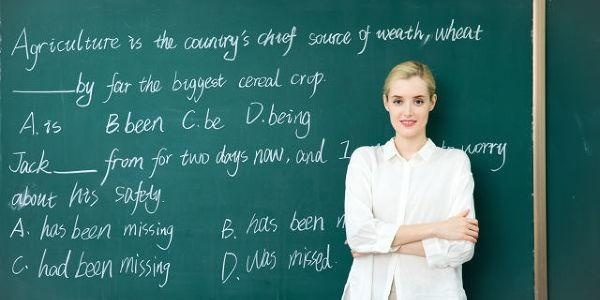 Agriculture is the country's chief source of weath, wheat
____by far the biggest cereal crop.
A. is B. been C. be D. being
Jack____from for two days now, and I to worry
about his safety.
A. has been missing B. has been
C. had been missing D. was missed.